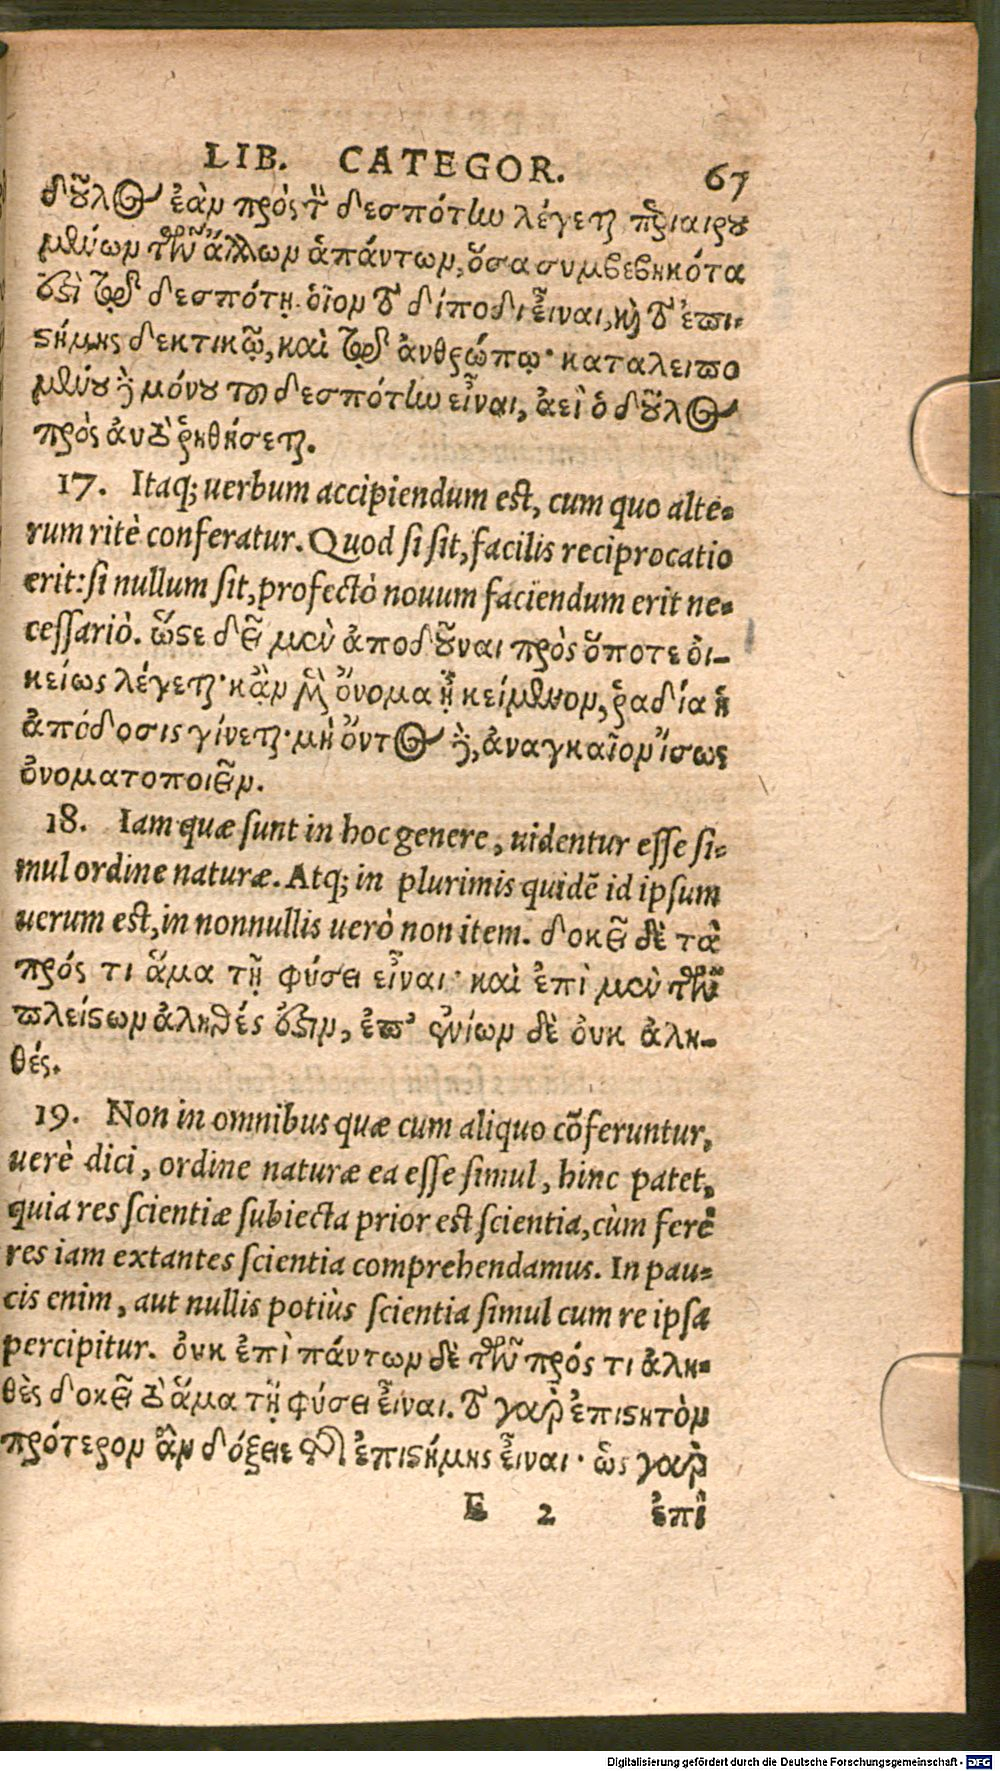 LIB. CATEGOR. 67
δοῦλος ἐὰν πρὸς τὸν δεσπότην λέγεται περιαιρου
μένων τῶν ἄλλων ἁπάντων, ὅσα συμβεβηκότα
ἐστὶ τῷ δεσπότῃ. ὁῖον τὸ δίποδι εἶναι, καὶ τὸ ἐπι-
στήμης δεκτικῷ, καὶ τῷ ἀνθρώπῳ· καταλειπο
μένου δὲ μόνου τοῦ δεσπότην εἶναι, ἀεὶ ὁ δοῦλος
πρὸς αὐτὸ ῥηθήσεται.
17. Itaq; uerbum accipiendum est, cum quo alte-
rum ritè conferatur. Quod si sit, facilis reciprocatio
erit: si nullum sit, profectò nouum faciendum erit ne-
cessariò. ὥστε δεῖ μὲν ἀποδοῦναι πρὸς ὅποτε ὀι-
κείως λέγεται· κἂν μὲν ὄνομα ᾖ κείμενον, ῥαδία ἡ
ἀπόδοσις γίνεται· μὴ ὄντος δὲ, ἀναγκαῖον ἴσως
ὀνοματοποιεῖν.
18. Iam quæ sunt in hoc genere, uidentur esse si-
mul ordine naturæ. Atq; in plurimis quidē id ipsum
uerum est, in nonnullis uerò non item. δοκεῖ δὲ τὰ
πρός τι ἅμα τῇ φύσει εἶναι· καὶ ἐπὶ μὲν τῶν
πλείστων ἀληθές ἐστιν, ἐπ’ ἐνίων δὲ ὀυκ ἀλη-
θές.
19. Non in omnibus quæ cum aliquo cōferuntur,
uerè dici, ordine naturæ ea esse simul, hinc patet,
quia res scientiæ subiecta prior est scientia, cùm ferè
res iam extantes scientia comprehendamus. In pau-
cis enim, aut nullis potiùs scientia simul cum re ipsa
percipitur. ὀυκ ἐπὶ πάντων δὲ τῶν πρός τι ἀλη-
θὲς δοκεῖ τὸ ἅμα τῇ φύσει εἶναι. τὸ γὰρ ἐπιστητὸν
πρότερον ἂν δόξειε τῆς ἐπιστήμης εἶναι· ὡς γὰρ
E 2 ἐπὶ
Digitalisierung gefördert durch die Deutsche Forschungsgemeinschaft - DFG